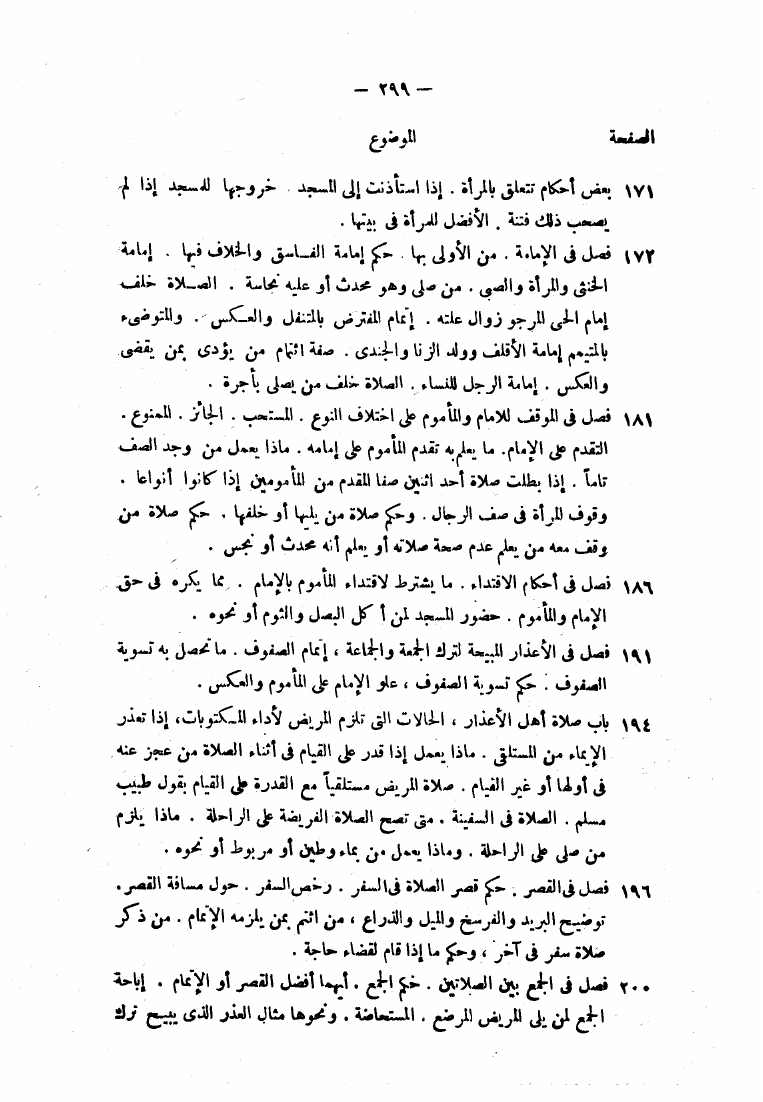 — ٢٩٩ —
الصفحة الموضوع
١٧١ بعض أحكام تتعلق بالمرأة . إذا استأذنت إلى المسجد . خروجها للمسجد إذا لم
يصحب ذلك فتنة . الأفضل للمرأة فى بيتها .
١٧٣ فصل فى الإمامة . من الأولى بها . حكم إمامة الفاسق والخلاف فيها . إمامة
الخنثى والمرأة والصبى . من صلى وهو محدث أو عليه نجاسة . الصلاة خلف
إمام الحى المرجو زوال علته . إتمام المفترض بالمتنفل والعكس . والمتوضىء
بالمتيمم إمامة الأقلف وولد الزنا والجندى . صفة ائتمام من يؤدى بمن يقضى
والعكس . إمامة الرجل للنساء . الصلاة خلف من يصلى بأجرة .
١٨١ فصل فى الموقف للامام والمأموم على اختلاف النوع . المستحب . الجائز . الممنوع .
التقدم على الإمام. ما يعلم به تقدم المأموم على إمامه . ماذا يعمل من وجد الصف
تاماً . إذا بطلت صلاة أحد اثنين صفا المقدم من المأمومين إذا كانوا أنواعا .
وقوف المرأة فى صف الرجال . وحكم صلاة من يليها أو خلفها . حكم صلاة من
وقف معه من يعلم عدم صحة صلاته أو يعلم أنه محدث أو نجس .
١٨٦ فصل فى أحكام الاقتداء . ما يشترط لاقتداء المأموم بالإمام . مما يكره فى حق
الإمام والمأموم . حضور المسجد لمن أكل البصل والثوم أو نحوه .
١٩١ فصل فى الأعذار المبيحة لترك الجمعة والجماعة ، إتمام الصفوف . ما تحصل به تسوية
الصفوف . حكم تسوية الصفوف ، علو الإمام على المأموم والعكس .
١٩٤ باب صلاة أهل الأعذار ، الحالات التى تلزم المريض لأداء المكتوبات، إذا تعذر
الإيماء من المستلقى . ماذا يعمل إذا قدر على القيام فى أثناء الصلاة من عجز عنه
فى أولها أو غير القيام . صلاة المريض مستلقياً مع القدرة على القيام بقول طبيب
مسلم . الصلاة فى السفينة . متى تصح الصلاة الفريضة على الراحلة . ماذا يلزم
من صلى على الراحلة . وماذا يعمل من بماء وطين أو مربوط أو نحوه .
١٩٦ فصل فى القصر . حكم قصر الصلاة فى السفر . رخص السفر . حول مسافة القصر .
توضيح البريد والفرسخ والميل والذراع ، من ائتم بمن يلزمه الإتمام . من ذكر
صلاة سفر فى آخر ، وحكم ما إذا قام لقضاء حاجة .
٢٠٠ فصل فى الجمع بين الصلاتين . حكم الجمع . أيهما أفضل القصر أو الإتمام . إباحة
الجمع لمن يلى المريض المرضع . المستحاضة . ونحوها مثال العذر الذى يبيح ترك